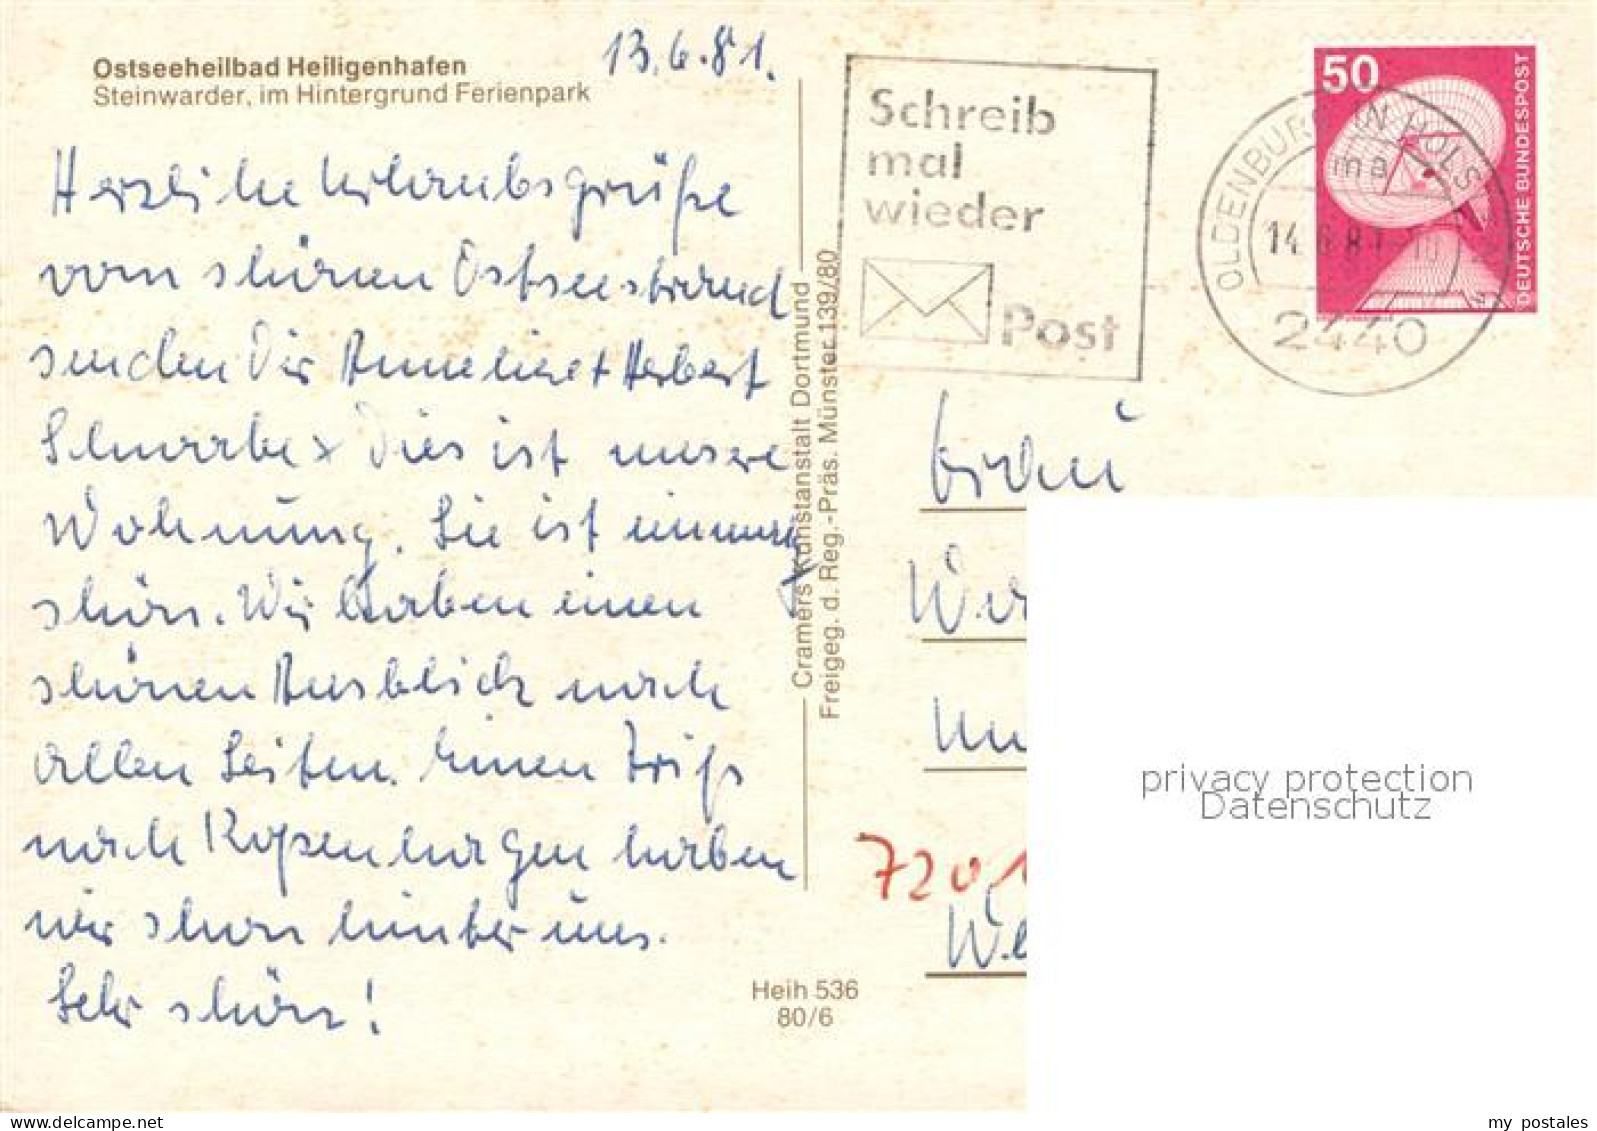 Ostseeheilbad Heiligenhafen
Steinwarder, im Hintergrund Ferienpark
13.6.81.
Herzliche Urlaubsgrüße
vom schönen Ostseestrand
senden Dir Anneliese + Herbert
Schwabe
Dies ist unsere
Wohnung. Sie ist
schön. Wir haben einen
schönen Ausblick nach
allen Seiten. Einen Trip
nach Kopenhagen haben
wir schon hinter uns.
Sehr schön!
Cramers Kunstanstalt Dortmund
Freigeg. d. Reg.-Präs. Münster 139/80
Heih 536
80/6
Schreib
mal
wieder
Post
OLDENBURG IN HOLST
ma
14.6.81
2440
50
DEUTSCHE BUNDESPOST
7201
privacy protection
Datenschutz
my postales